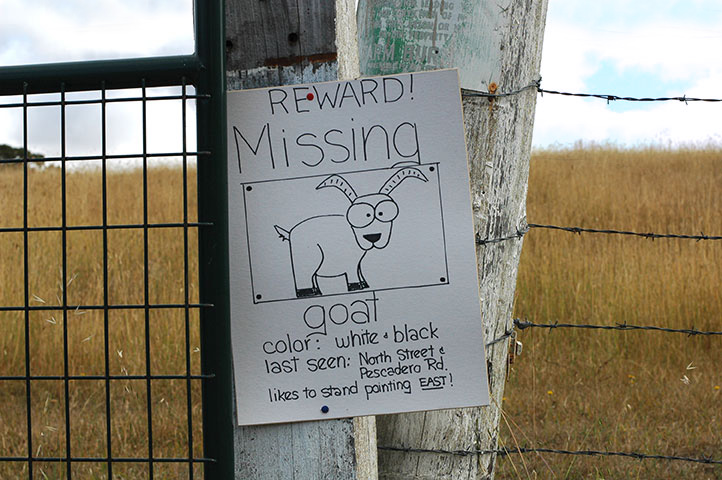 REWARD!
Missing
goat
color: white & black
last seen: North Street &
Pescadero Rd.
likes to stand pointing EAST!